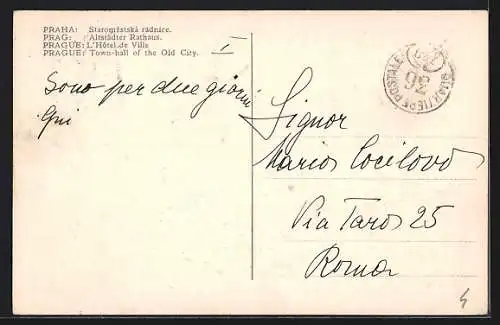 PRAHA: Staroměstská radnice.
PRAG: Altstädter Rathaus.
PRAGUE: L'Hôtel de Ville
PRAGUE: Town-hall of the Old City.
I
Sono per due giorni
Qui
Signor
Mario Cocilovo
Via Taro 25
Roma
QUARTIERE POSTALE
92
4